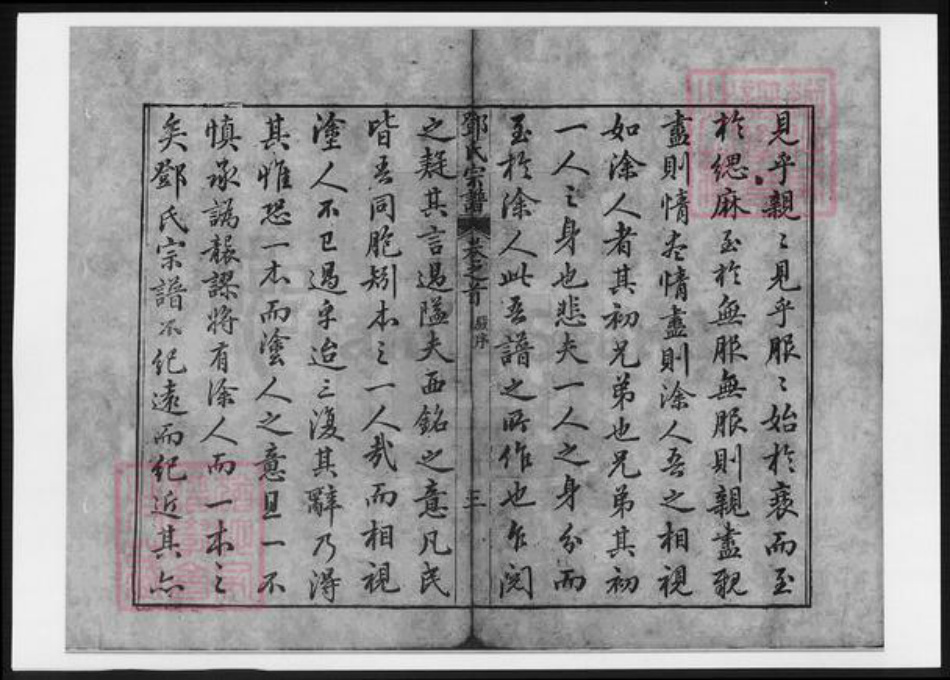 見乎親〻見乎服〻始於衰而至
於緦麻至於無服無服則親盡親
盡則情盡情盡則塗人吾之相視
如塗人者其初兄弟也兄弟其初
一人之身也悲夫一人之身分而
至於塗人此吾譜之所作也乍閱
鄧氏宗譜 卷之首 原序 三
之疑其言過隘夫西銘之意凡民
皆吾同胞矧本之一人哉而相視
塗人不已過乎迨三復其辭乃得
其惟恐一本而塗人之意且一不
慎承譌襲謬將有塗人而一本之
矣鄧氏宗譜不紀遠而紀近其亦